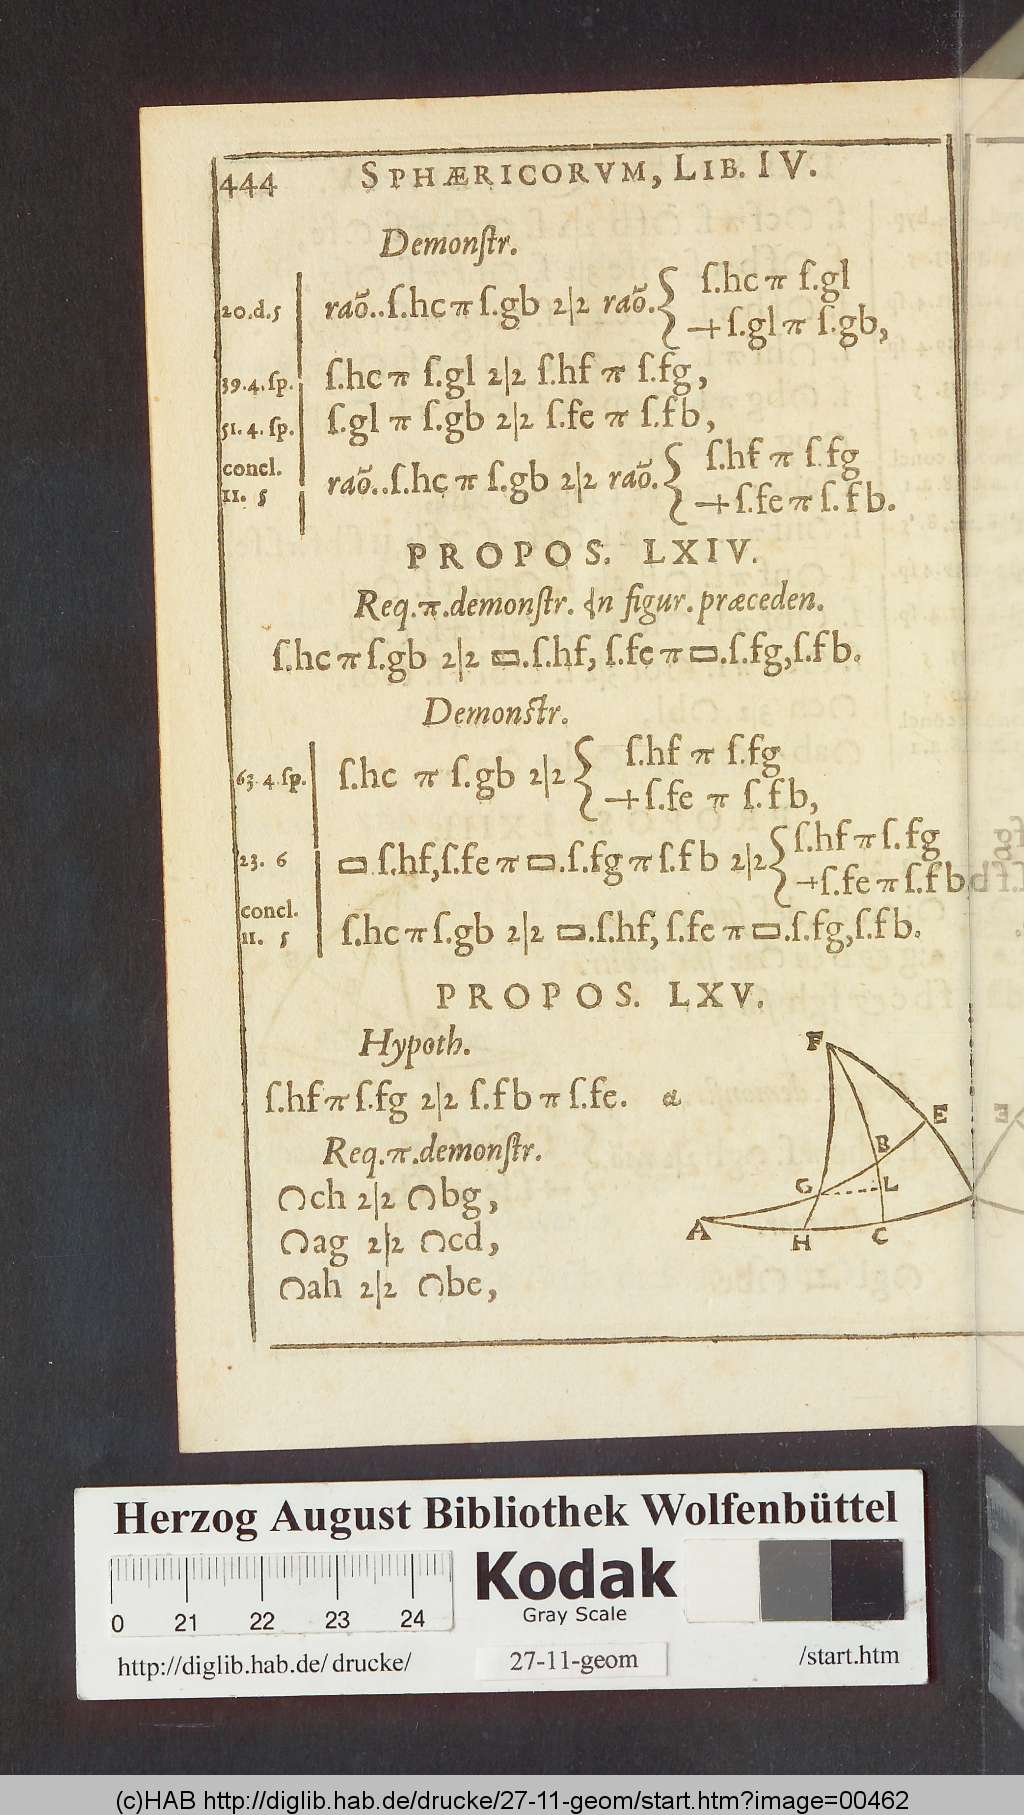 444 SPHÆRICORVM, LIB. IV.
Demonſtr.
20.d.5 raõ..ſ.hc π ſ.gb 2|2 raõ. { ſ.hc π ſ.gl
+ ſ.gl π ſ.gb,
39.4.ſp. ſ.hc π ſ.gl 2|2 ſ.hf π ſ.fg,
51.4.ſp. ſ.gl π ſ.gb 2|2 ſ.fe π ſ.fb,
concl.
11. 5 raõ..ſ.hc π ſ.gb 2|2 raõ. { ſ.hf π ſ.fg
+ ſ.fe π ſ.fb.
PROPOS. LXIV.
Req.π.demonſtr. In figur. præceden.
ſ.hc π ſ.gb 2|2 ▭.ſ.hf, ſ.fe π ▭.ſ.fg,ſ.fb.
Demonſtr.
63.4.ſp. ſ.hc π ſ.gb 2|2 { ſ.hf π ſ.fg
+ ſ.fe π ſ.fb,
23. 6 ▭ ſ.hf,ſ.fe π ▭.ſ.fg π ſ.fb 2|2 { ſ.hf π ſ.fg
+ ſ.fe π ſ.fb
concl.
11. 5 ſ.hc π ſ.gb 2|2 ▭.ſ.hf, ſ.fe π ▭.ſ.fg,ſ.fb.
PROPOS. LXV.
Hypoth.
ſ.hf π ſ.fg 2|2 ſ.fb π ſ.fe. α
Req.π.demonſtr.
∩ch 2|2 ∩bg,
∩ag 2|2 ∩cd,
∩ah 2|2 ∩be,
F
E
B
G L
A H C
Herzog August Bibliothek Wolfenbüttel
Kodak
Gray Scale
0 21 22 23 24
http://diglib.hab.de/drucke/ 27-11-geom /start.htm
(c)HAB http://diglib.hab.de/drucke/27-11-geom/start.htm?image=00462